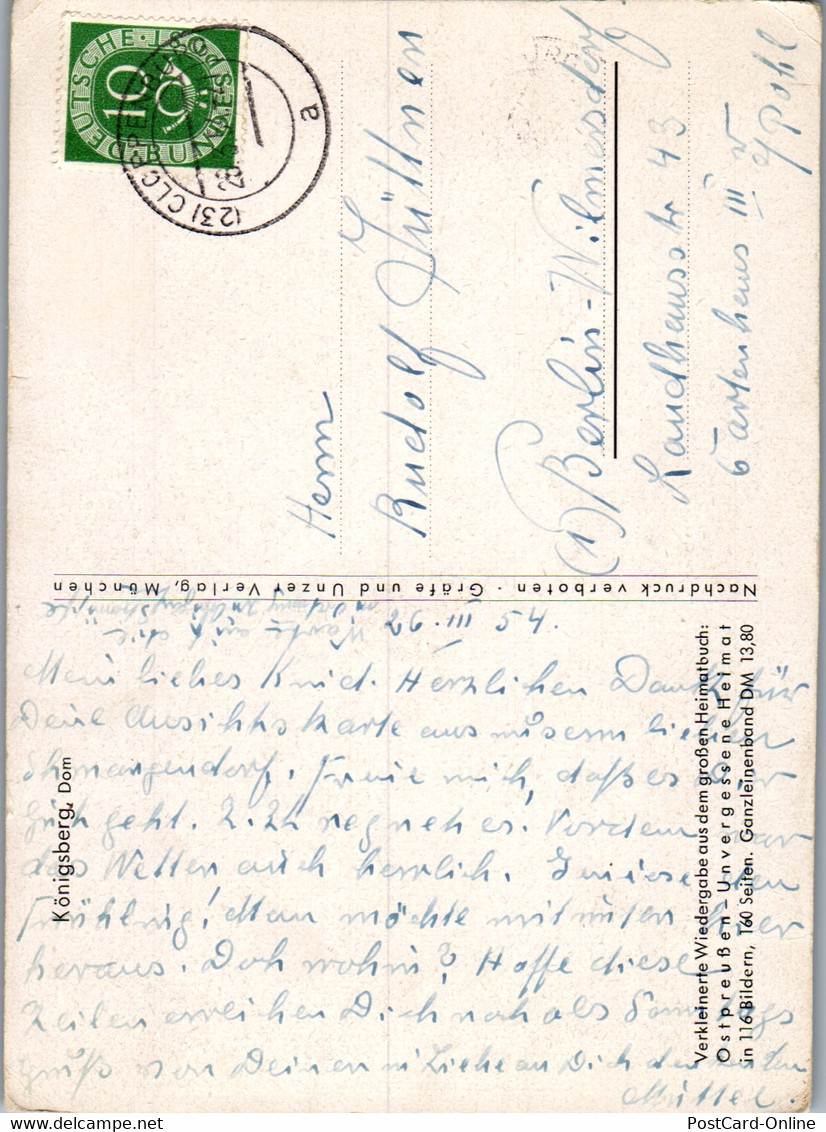 DEUTSCHE BUNDESPOST
10
(23) CLOPPENBURG
a
Herrn
Rudolf Hüttner
(1) Berlin-Wilmersdorf
Landhausstr 43
Gartenhaus III r
b/ Pohl
Nachdruck verboten · Gräfe und Unzer Verlag, München
Königsberg, Dom
Verkleinerte Wiedergabe aus dem großen Heimatbuch:
Ostpreußen – Unvergessene Heimat
in 116 Bildern, 160 Seiten. Ganzleinenband DM 13,80
Warte auf die
26. III 54.
Mein liebes Kind. Herzlichen Dank für
Deine Ansichtskarte aus unserm lieben
Schmargendorf. Freue mich, daß es Dir
gut geht. Z. Zt regnet es. Vordem war
das Wetter auch herrlich. Geniese den
Frühling! Man möchte mitunter hier
heraus. Doch wohin? Hoffe diese
Zeilen erreichen Dich noch als Sonntags
gruß von Deiner in Liebe an Dich denkenden
Muttel.
PostCard-Online